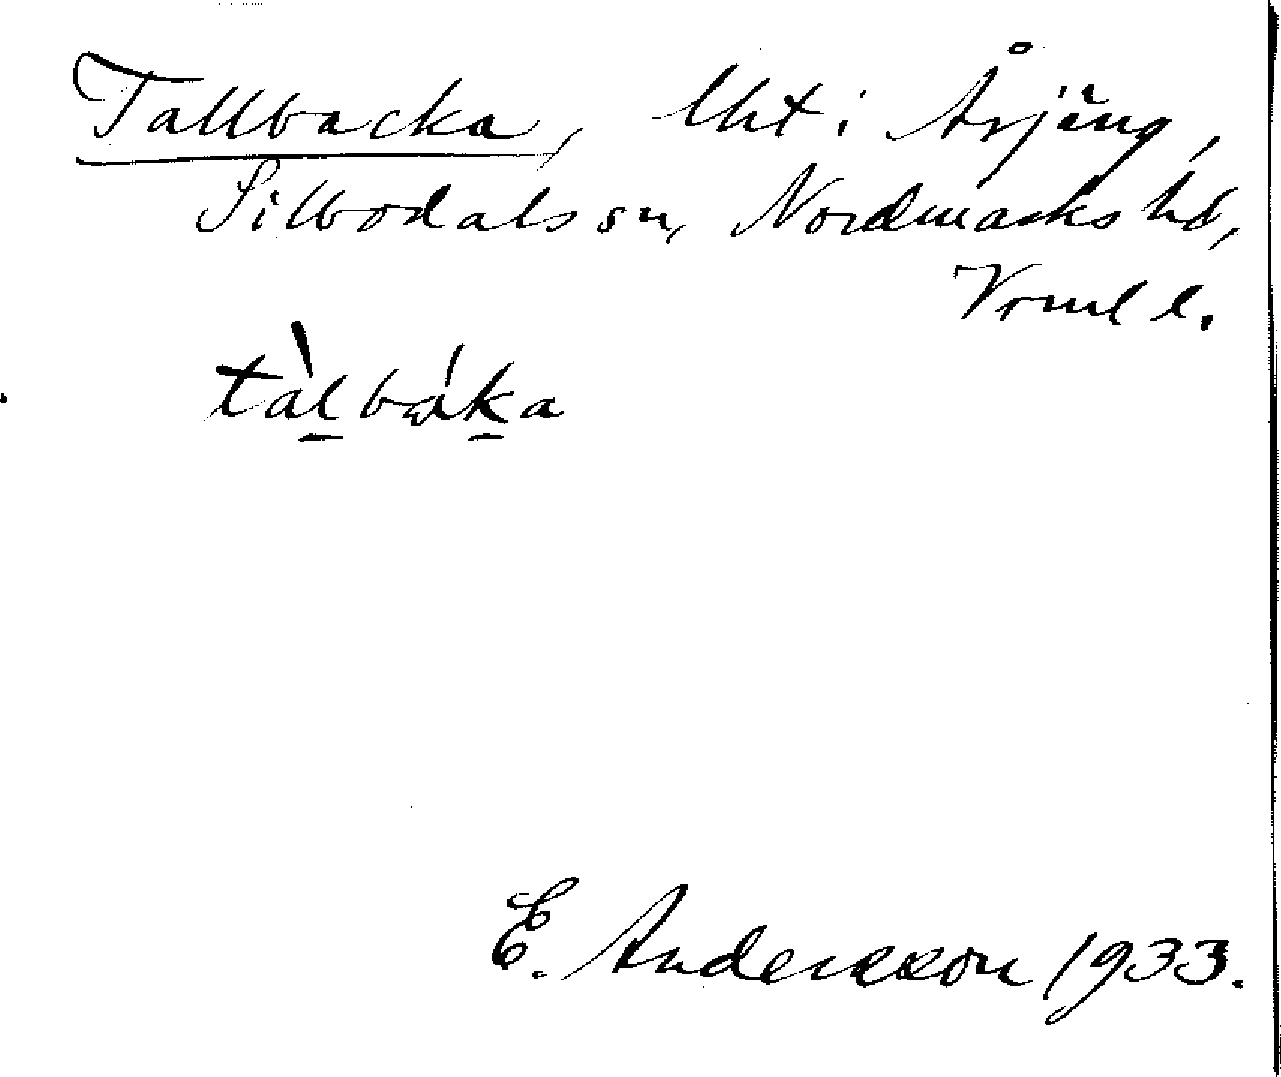 Tallbacka, lht i Årjäng,
Silbodals sn, Nordmarks hd,
Vrml l.
tàl̠bák̠a
E. Andersson 1933.